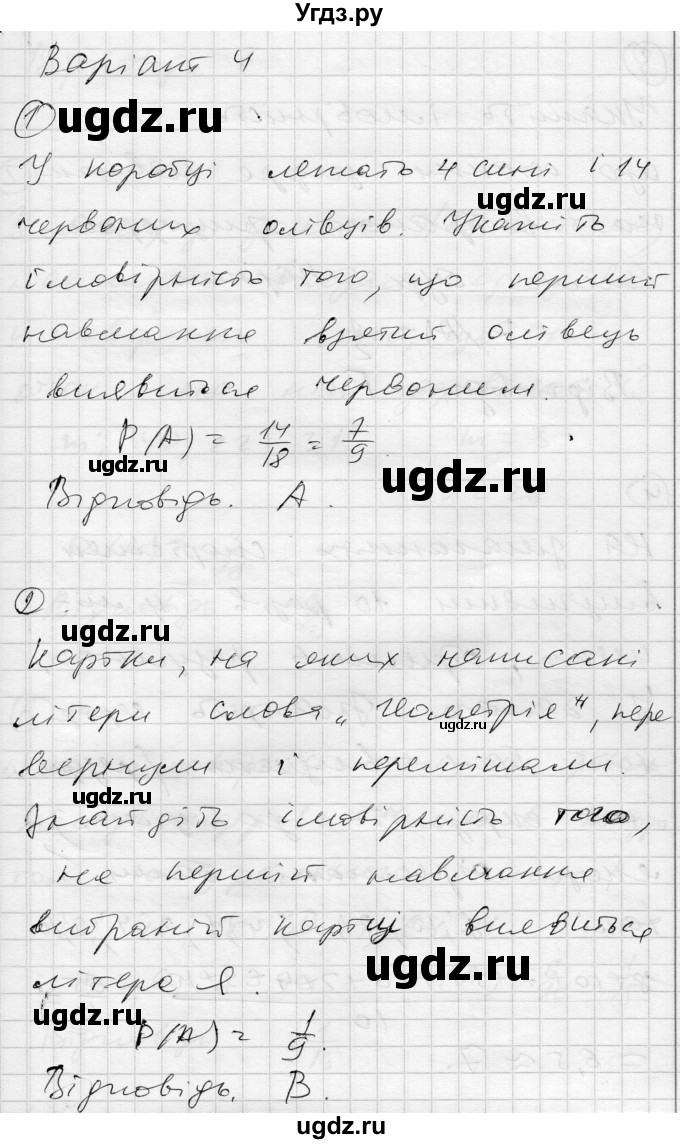 Угдз.ру
Варіант 4
1 ugdz.ru
У коробці лежать 4 сині і 14
ugdz.ru
червоних олівців. Укажіть
імовірність того, що перший
навмання взятий олівець
виявиться червоним.
P(A) = 14/18 = 7/9.
ugdz.ru
ugdz.ru
Відповідь. А.
2
ugdz.ru
Картки, на яких написані
літери слова „Геометрія", пере
ugdz.ru
вернули і перемішали.
ugdz.ru
Знайдіть імовірність того,
на першій навмання
вибраній картці виявиться
літера Я.
ugdz.ru
ugdz.ru
P(A) = 1/9.
Відповідь. В.
ugdz.ru
ugdz.ru